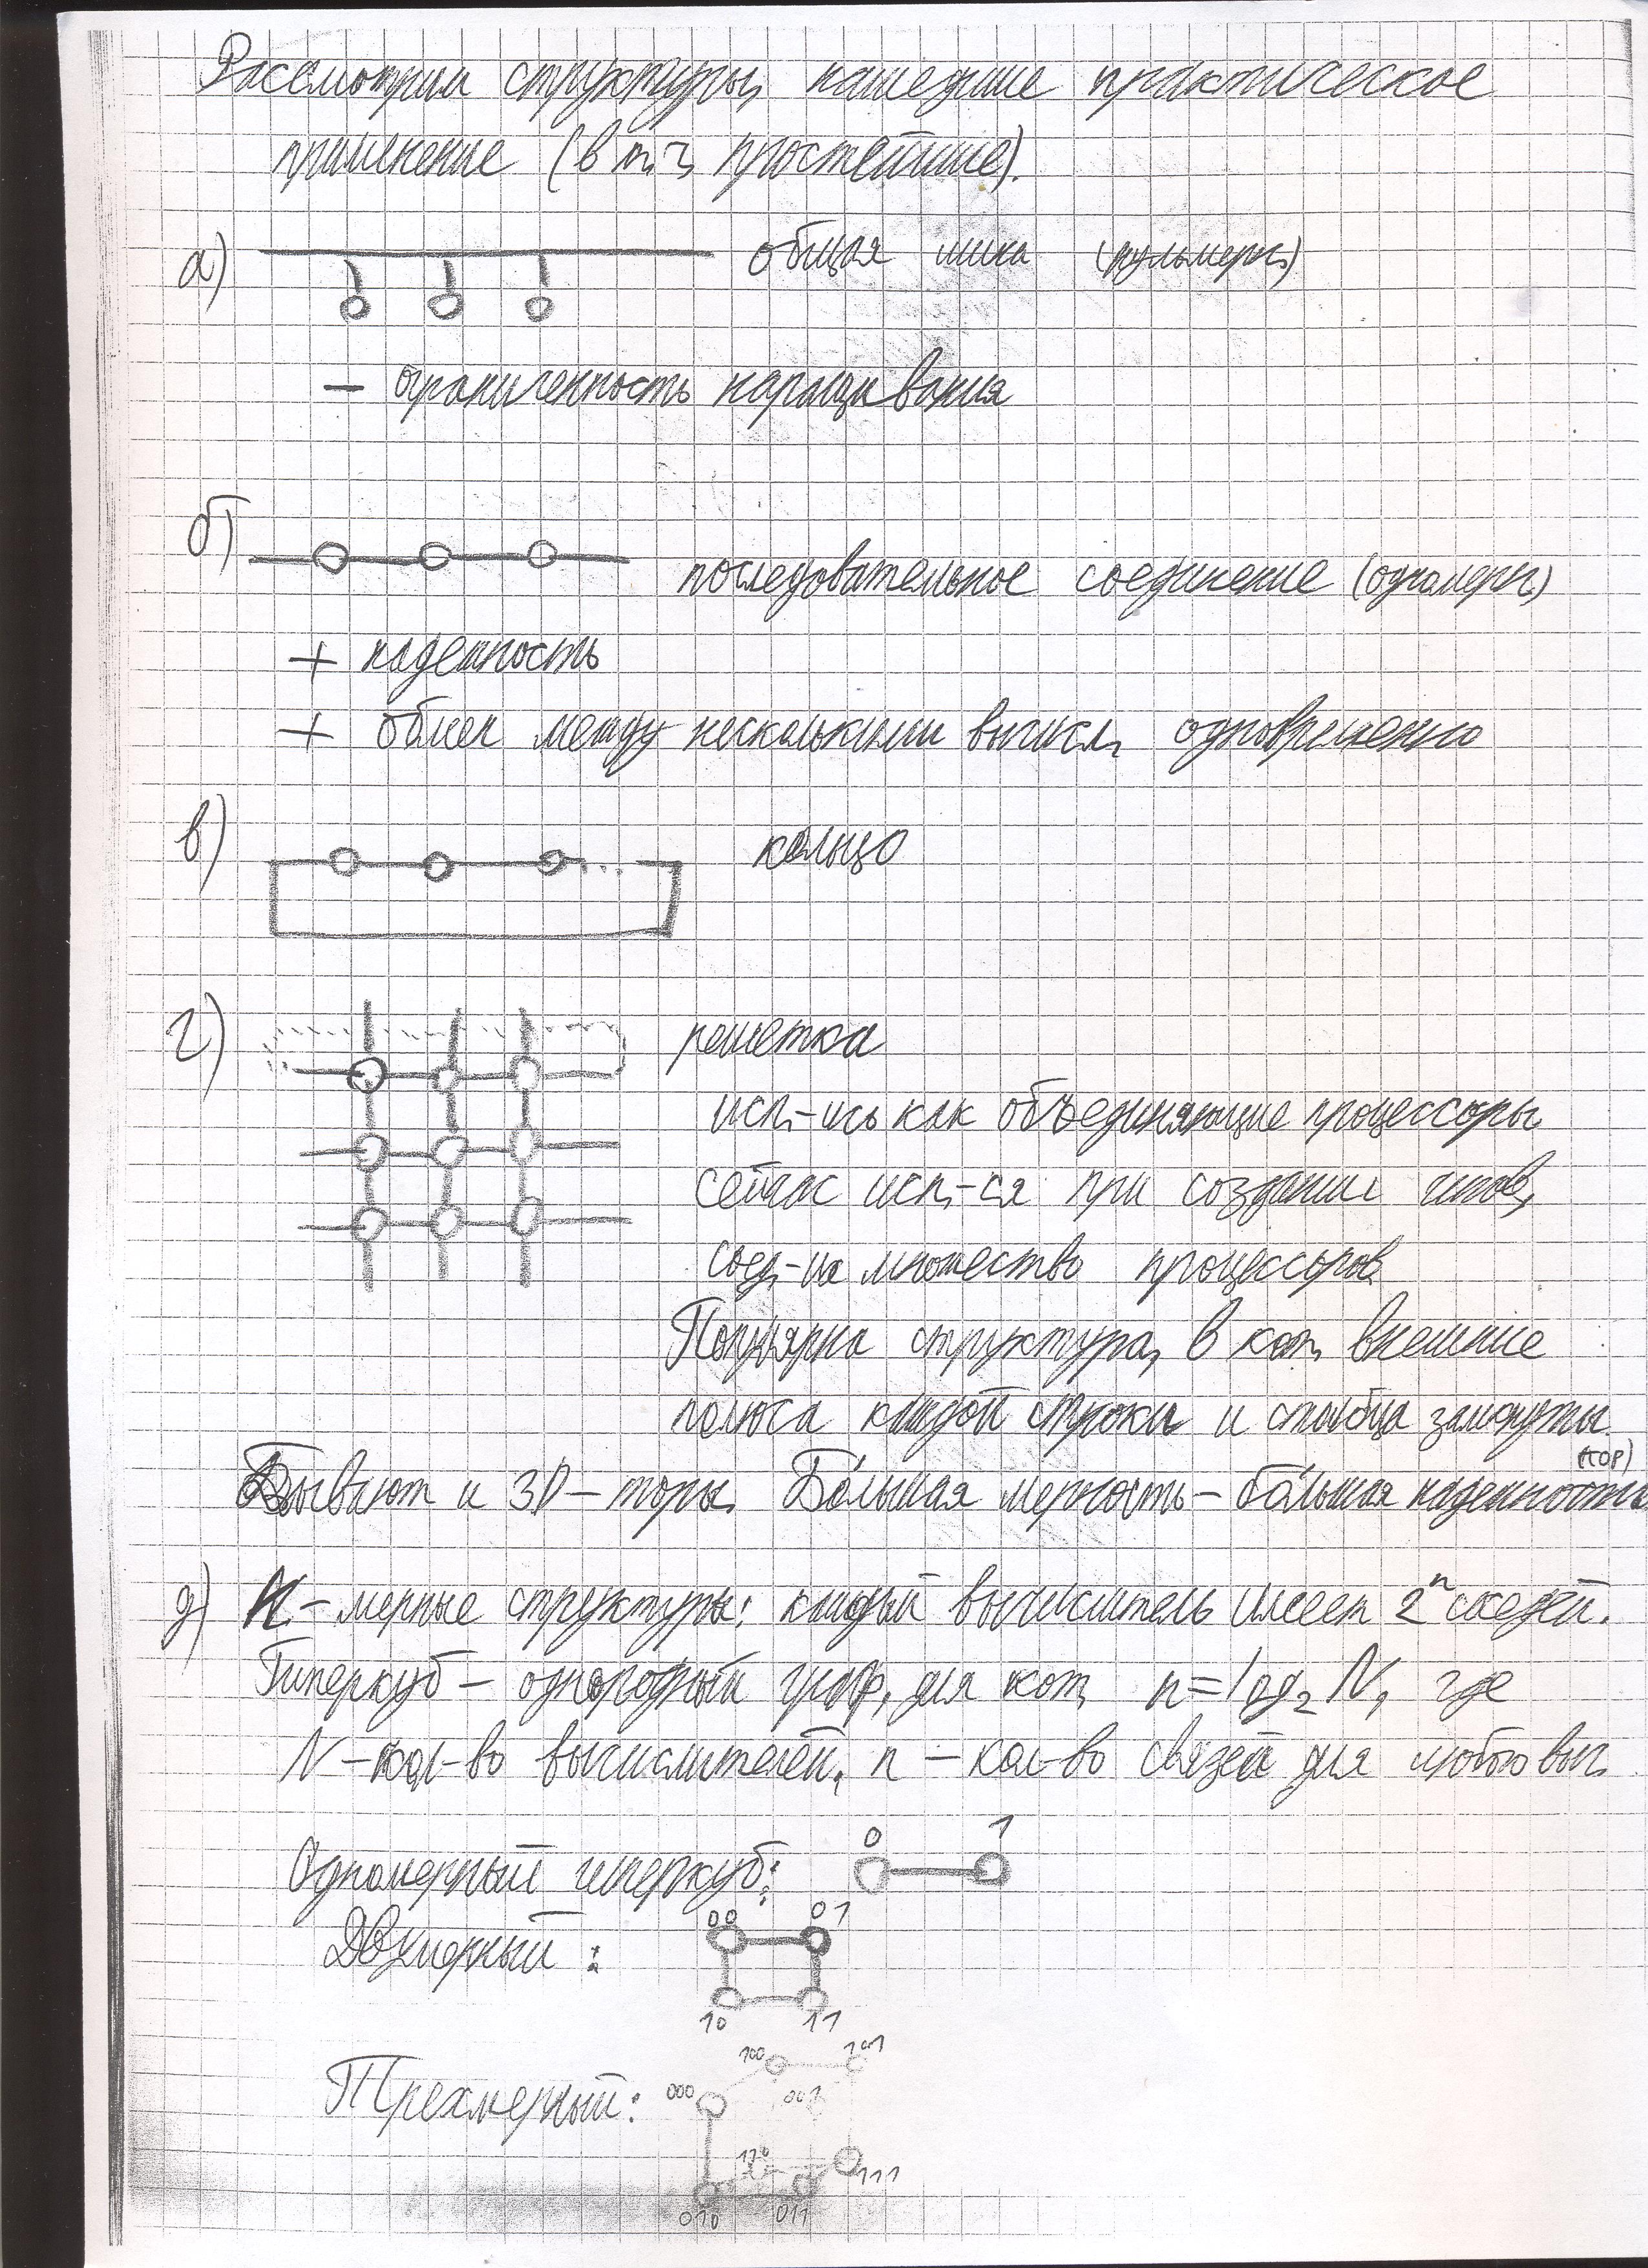 Рассмотрим структуры, нашедшие практическое
применение (в т.ч. простейшие).
а) общая шина (нульмерн.)
— ограниченность наращивания
б) последовательное соединение (одномерн.)
+ надежность
+ обмен между несколькими вычисл. одновременно
в) кольцо
г) решетка
исп-ись как объединяющие процессоры.
Сейчас исп-ся при создании чипов,
соед-их множество процессоров.
Популярна структура, в кот. внешние
полюса каждой строки и столбца замкнуты.
(тор)
Бывают и 3D-торы. Бо́льшая мерность – бо́льшая надежность
д) N-мерные структуры: каждый вычислитель имеет 2ⁿ соседей.
Гиперкуб – однородный граф, для кот. n = log₂ N, где
N – кол-во вычислителей, n – кол-во связей для любого выч.
Одномерный гиперкуб: 0 1
Двумерный: 00 01
10 11
100 101
Трехмерный: 000 001
110 111
010 011